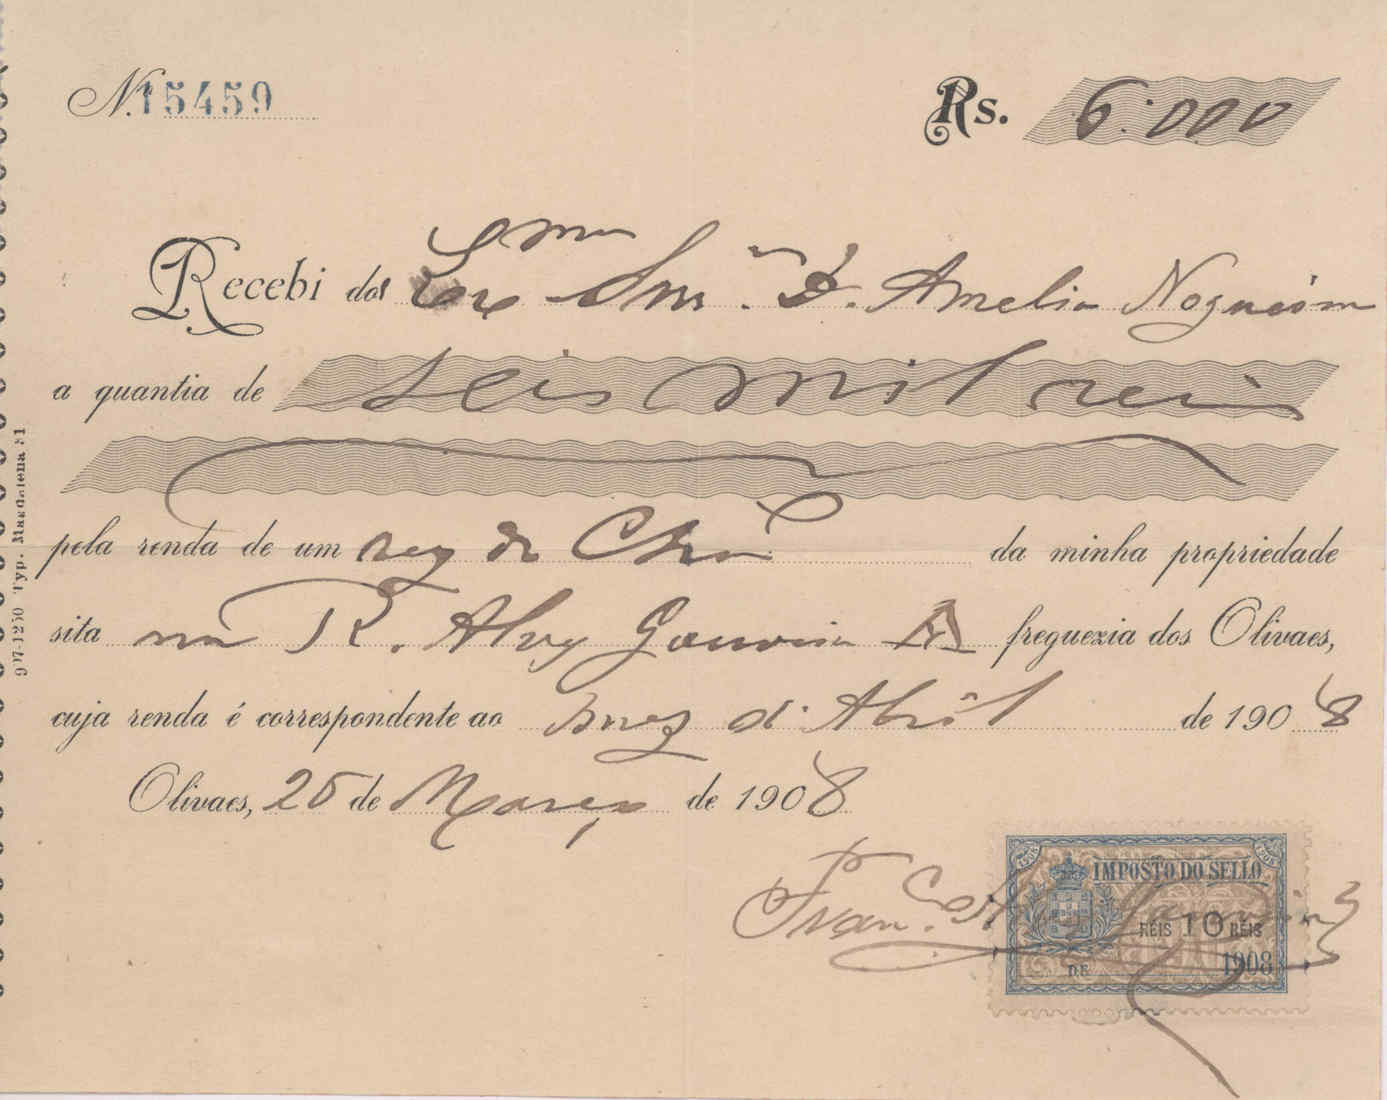 N. 15459
Rs. 6:000
Recebi do Exma Snra D. Amelia Nogueira
a quantia de seis mil reis
pela renda de um rez do Chão da minha propriedade
sita na R. Alves Gouveia A freguezia dos Olivaes,
cuja renda é correspondente ao mez d'Abril de 1908
Olivaes, 25 de Março de 1908
Fran.co Alves Gouveia
IMPOSTO DO SELLO
RÉIS 10 RÉIS
DE 1908
917-1250 Typ. Magdalena 31